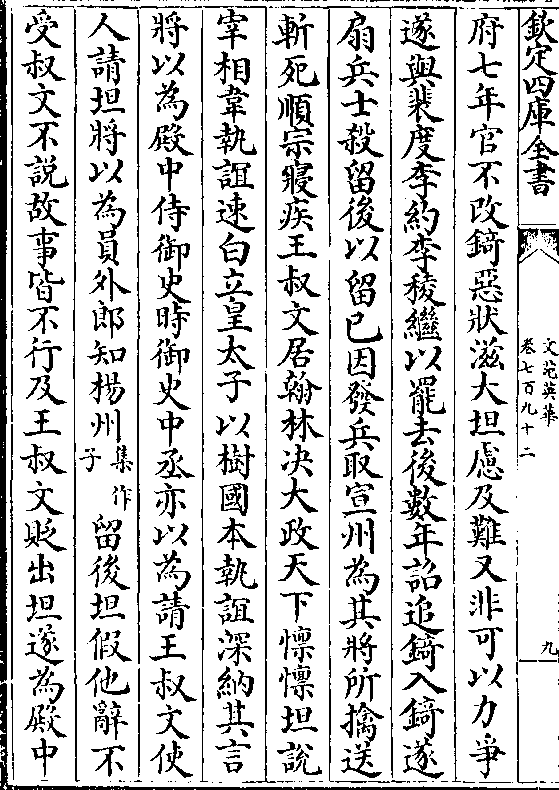 欽定四庫全書
文苑英華
卷七百九十二
九
府七年官不改錡惡狀滋大坦慮及難又非可以力爭
遂與裴度李約李稜繼以罷去後數年詔追錡入錡遂
扇兵士殺留後以留已因發兵取宣州為其將所擒送
斬死順宗寢疾王叔文居翰林决大政天下懍懍坦說
宰相韋執誼速白立皇太子以樹國本執誼深納其言
將以為殿中侍御史時御史中丞亦以為請王叔文使
人請坦將以為員外郎知楊州集作子留後坦假他辭不
受叔文不說故事皆不行及王叔文貶出坦遂為殿中